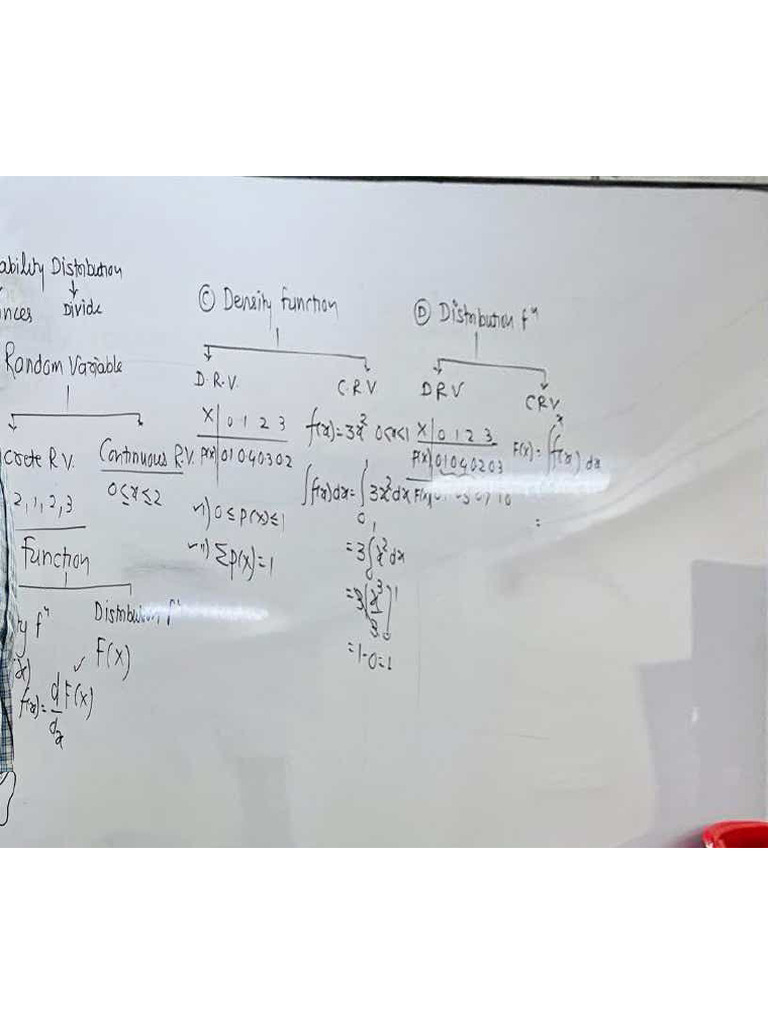 ability Distribution
nces Divide
Random Variable
crete R.V. Continuous R.V.
2,1,2,3 0≤x≤2
Function
y fⁿ Distribution fⁿ
(x) F(x)
f(x)= d/dx F(x)
Ⓒ Density function
D.R.V. C.R.V
X | 0 1 2 3
P(x) 0.1 0.4 0.3 0.2
i) 0≤p(x)≤1
ii) Σp(x)=1
f(x)=3x² 0<x<1
∫f(x)dx=∫₀¹3x²dx
=3∫₀¹x²dx
=3[x³/3]₀¹
=1-0=1
Ⓓ Distribution fⁿ
DRV CRV
X | 0 1 2 3
P(x) 0.1 0.4 0.2 0.3
F(x) 0.1 0.5 0.7 1.0
F(x)=∫ˣf(x)dx
=